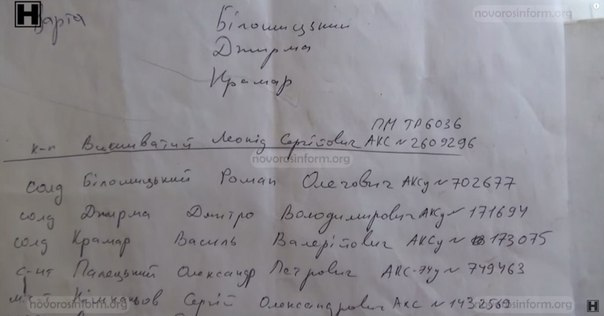 H
novorosinform.org
novorosinform.org
Варта
Білошицький
Джирма
Крамар
ПМ ТР6036
к-н Вишиватий Леонід Сергійович АКС №2609296
novorosinform.org
солд Білошицький Роман Олегович АКСу № 702677
солд Джирма Дмитро Володимирович АКСу № 171694
солд Крамар Василь Валерійович АКСу № 173075
с-нт Палецький Олександр Петрович АКС-74у № 749463
Сергій Олександрович АКС № 1432569
novorosinform.org
novorosinform.org
H